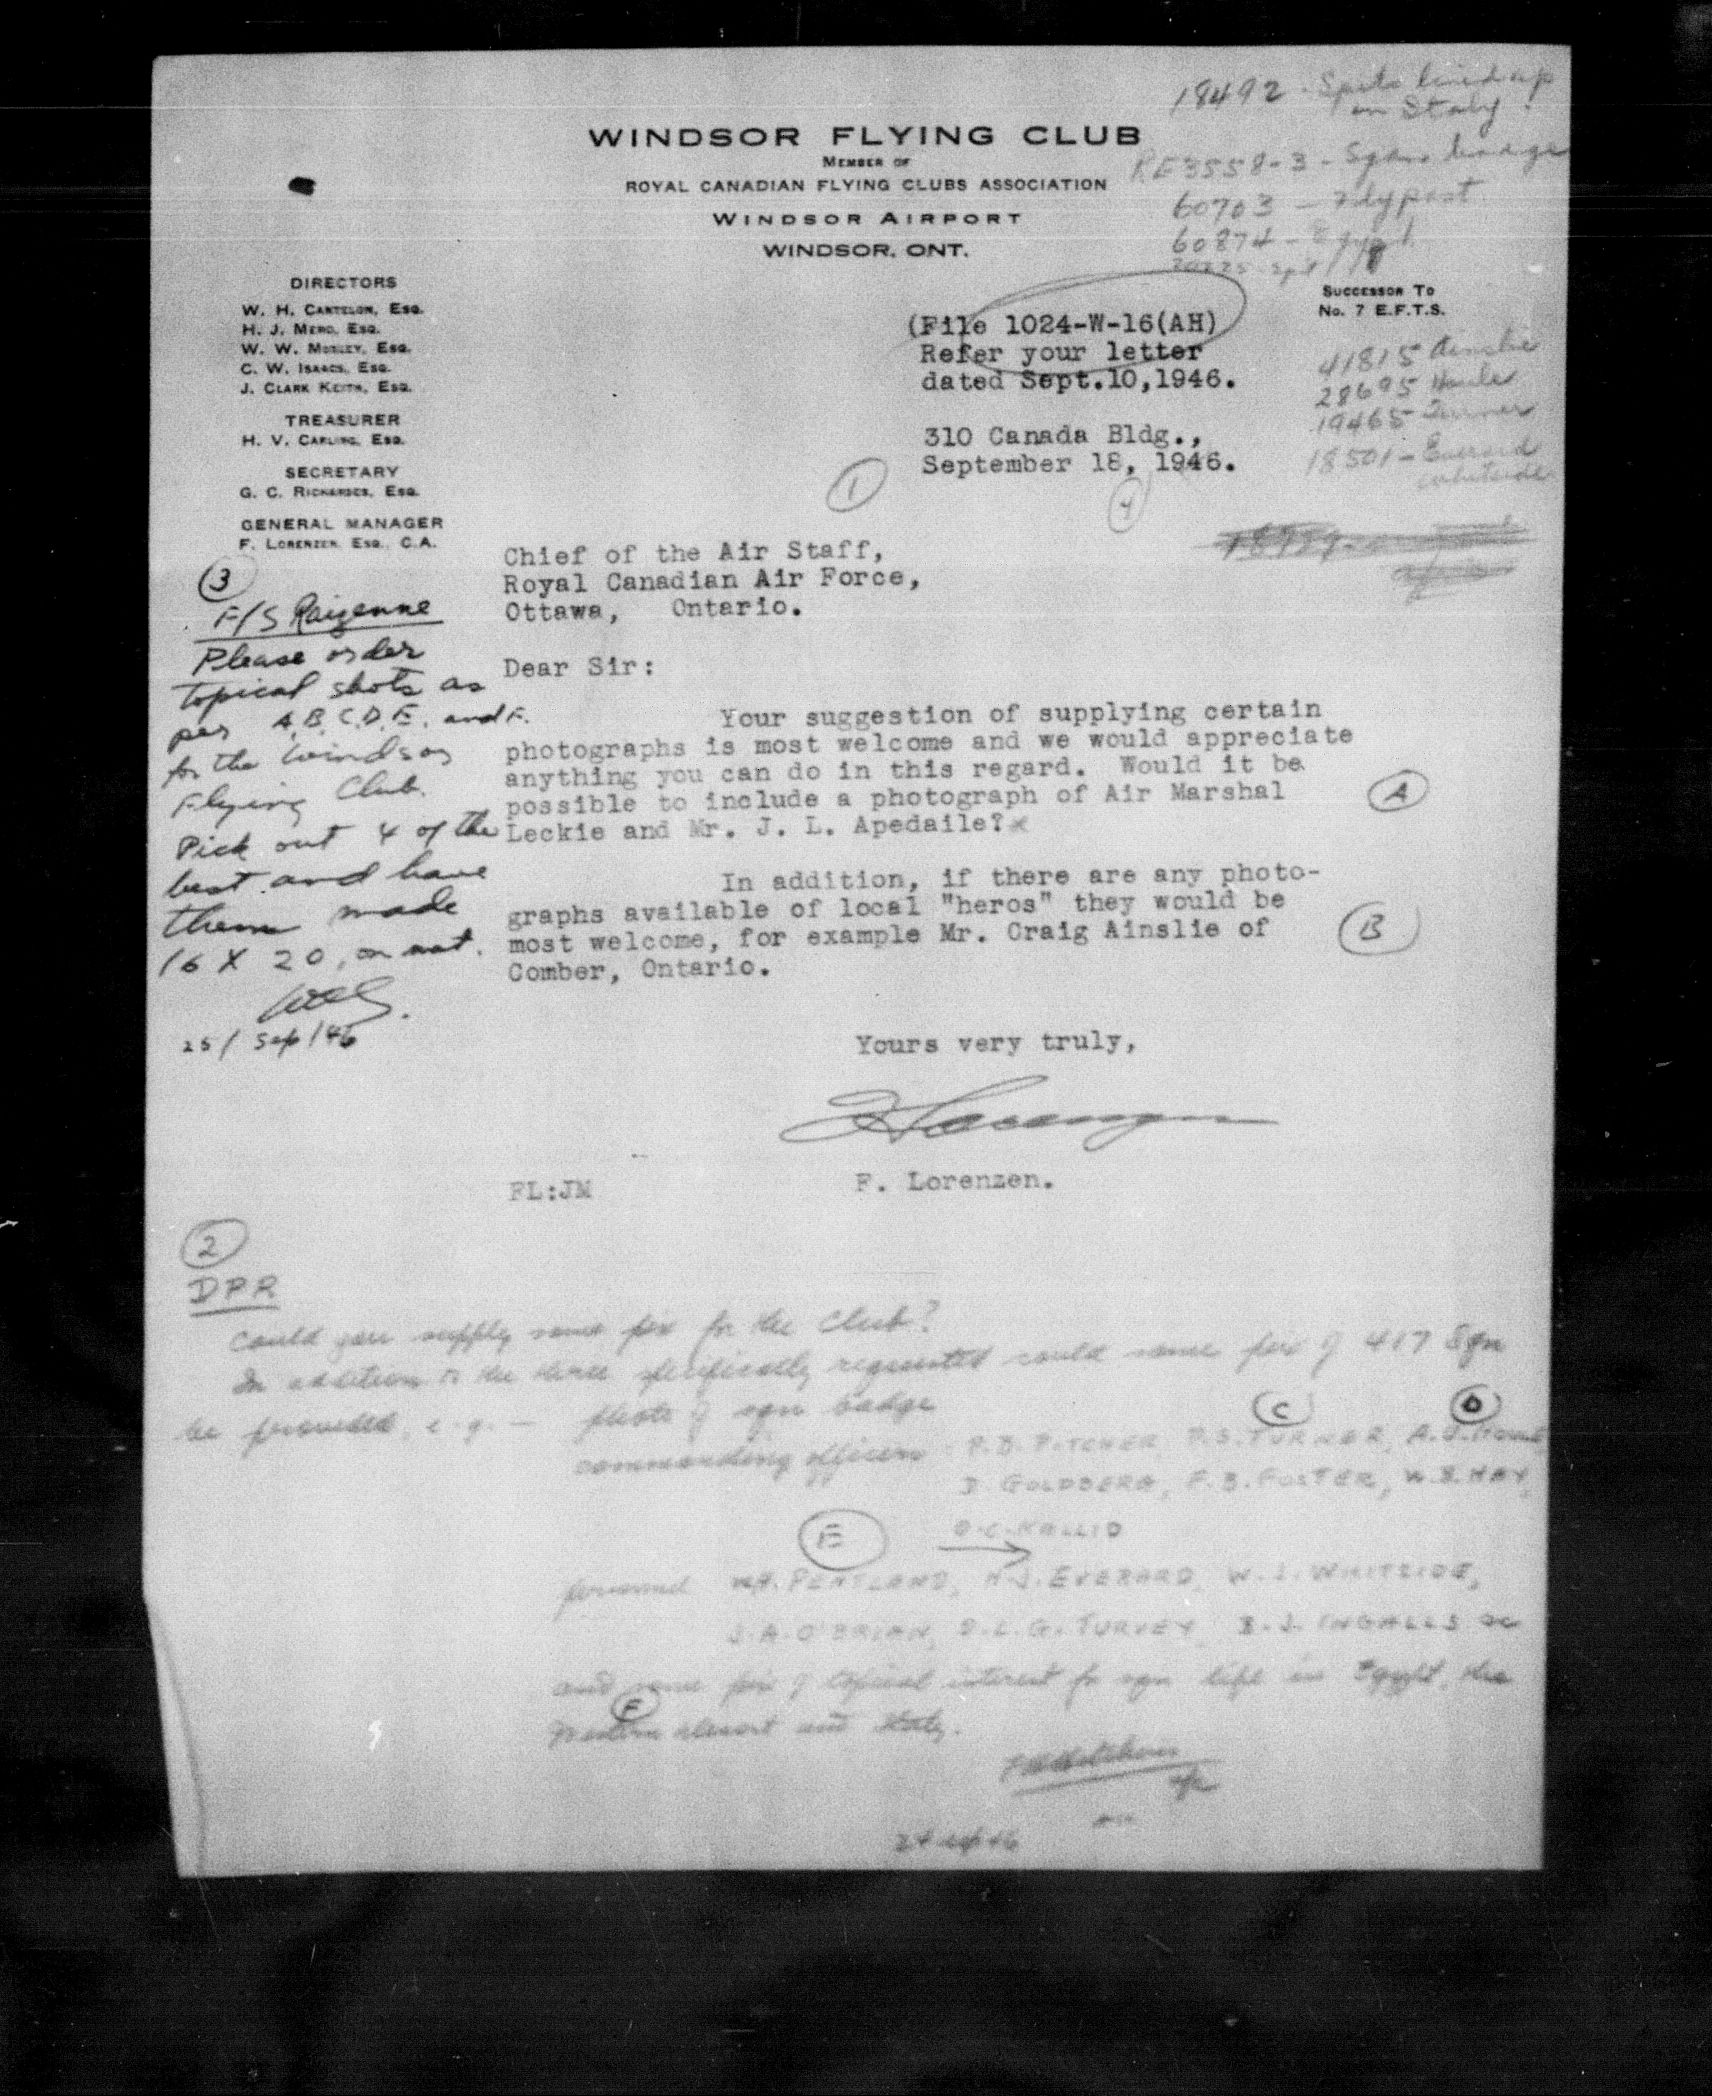 18492 - Spits lined up
in Italy
WINDSOR FLYING CLUB
MEMBER OF
ROYAL CANADIAN FLYING CLUBS ASSOCIATION
WINDSOR AIRPORT
WINDSOR, ONT.
RE3558-3 - Sqdn. badge
60703 - Fly past
60874 - Egypt
DIRECTORS
W. H. CANTELON, ESQ.
H. J. MERO, ESQ.
W. W. ESQ.
C. W. ISAACS, ESQ.
J. CLARK KEITH, ESQ.
TREASURER
H. V. CARLING, ESQ.
SECRETARY
G. C. RICHARDES, ESQ.
GENERAL MANAGER
F. LORENZEN, ESQ., C.A.
SUCCESSOR TO
NO. 7 E.F.T.S.
(File 1024-W-16(AH)
Refer your letter
dated Sept.10,1946.
41815 Ainslie
28695 Houle
19465 Turner
18501 - Everard
Whiteside
310 Canada Bldg.,
September 18, 1946.
1
4
Chief of the Air Staff,
Royal Canadian Air Force,
Ottawa, Ontario.
Dear Sir:
Your suggestion of supplying certain
photographs is most welcome and we would appreciate
anything you can do in this regard. Would it be
possible to include a photograph of Air Marshal
Leckie and Mr. J. L. Apedaile?
A
In addition, if there are any photo-
graphs available of local "heros" they would be
most welcome, for example Mr. Craig Ainslie of
Comber, Ontario.
B
Yours very truly,
F Lorenzen
F. Lorenzen.
FL:JM
3
F/S Raizenne
Please order
topical shots as
per A,B,C,D,E, and F.
for the Windsor
Flying Club.
Pick out 4 of the
best and have
them made
16 X 20, on mat.
25/Sep/46
2
DPR
Could you supply some pix for the Club?
In addition to the three specifically requested could some pix of 417 Sqn
be provided, e.g. - photo of sqn badge
C
D
commanding officers P.B. PITCHER, P.S. TURNER, A.U. HOULE
D GOLDBERG, F.B. FOSTER, W.B. HAY,
O.C. KALLIO
E
personnel W.H. PENTLAND, H.J. EVERARD, W.J. WHITESIDE,
J.A. O'BRIAN, D.L.G. TURVEY, B.J. INGALLS etc
and some pix of topical interest for sqn life in Egypt, the
F
Western desert and Italy.
24 Sep 46